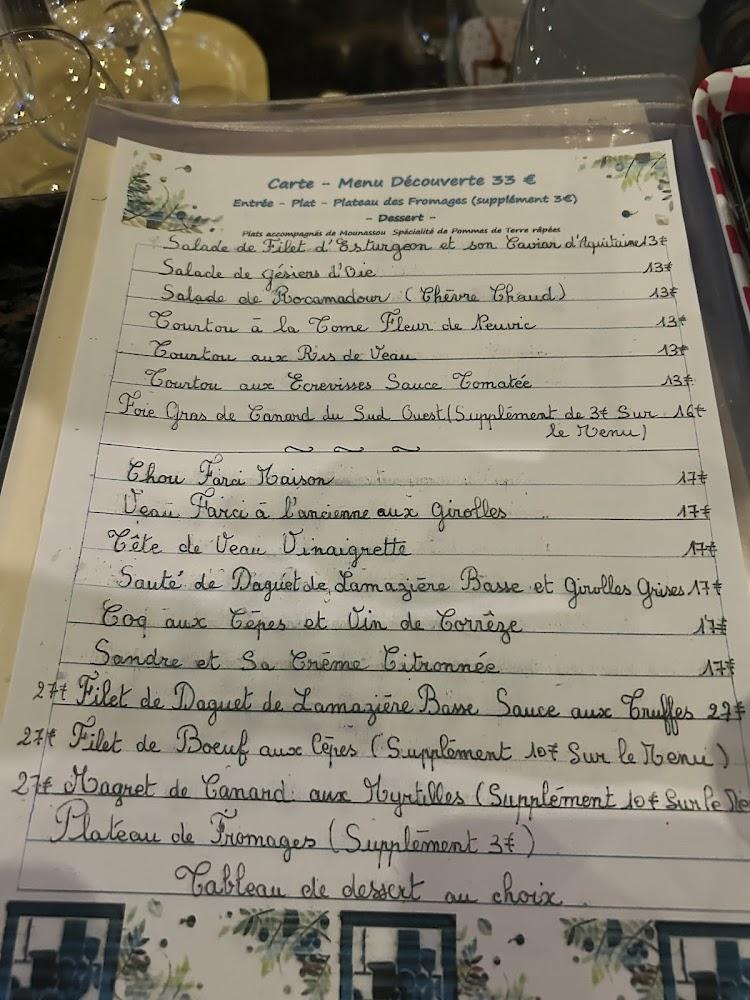 Carte - Menu Découverte 33 €
Entrée - Plat - Plateau des Fromages (supplément 3€)
- Dessert -
Plats accompagnés de Mounassou Spécialité de Pommes de Terre râpées
Salade de Filet d'Esturgeon et son Caviar d'Aquitaine 13€
Salade de gésiers d'Oie 13€
Salade de Rocamadour (Chèvre Chaud) 13€
Tourtou à la Tome Fleur de Neuvic 13€
Tourtou aux Ris de Veau 13€
Tourtou aux Ecrevisses Sauce Tomatée 13€
Foie Gras de Canard du Sud Ouest (Supplément de 3€ Sur 16€
le Menu)
Chou Farci Maison 17€
Veau Farci à l'ancienne aux Girolles 17€
Tête de Veau Vinaigrette 17€
Sauté de Daguet de Lamazière Basse et Girolles Grises 17€
Coq aux Cèpes et Vin de Corrèze 17€
Sandre et Sa Crème Citronnée 17€
27€ Filet de Daguet de Lamazière Basse Sauce aux Truffes 27€
27€ Filet de Boeuf aux Cèpes (Supplément 10€ Sur le Menu)
27€ Magret de Canard aux Myrtilles (Supplément 10€ Sur le Me
Plateau de Fromages (Supplément 3€)
Tableau de dessert au choix.